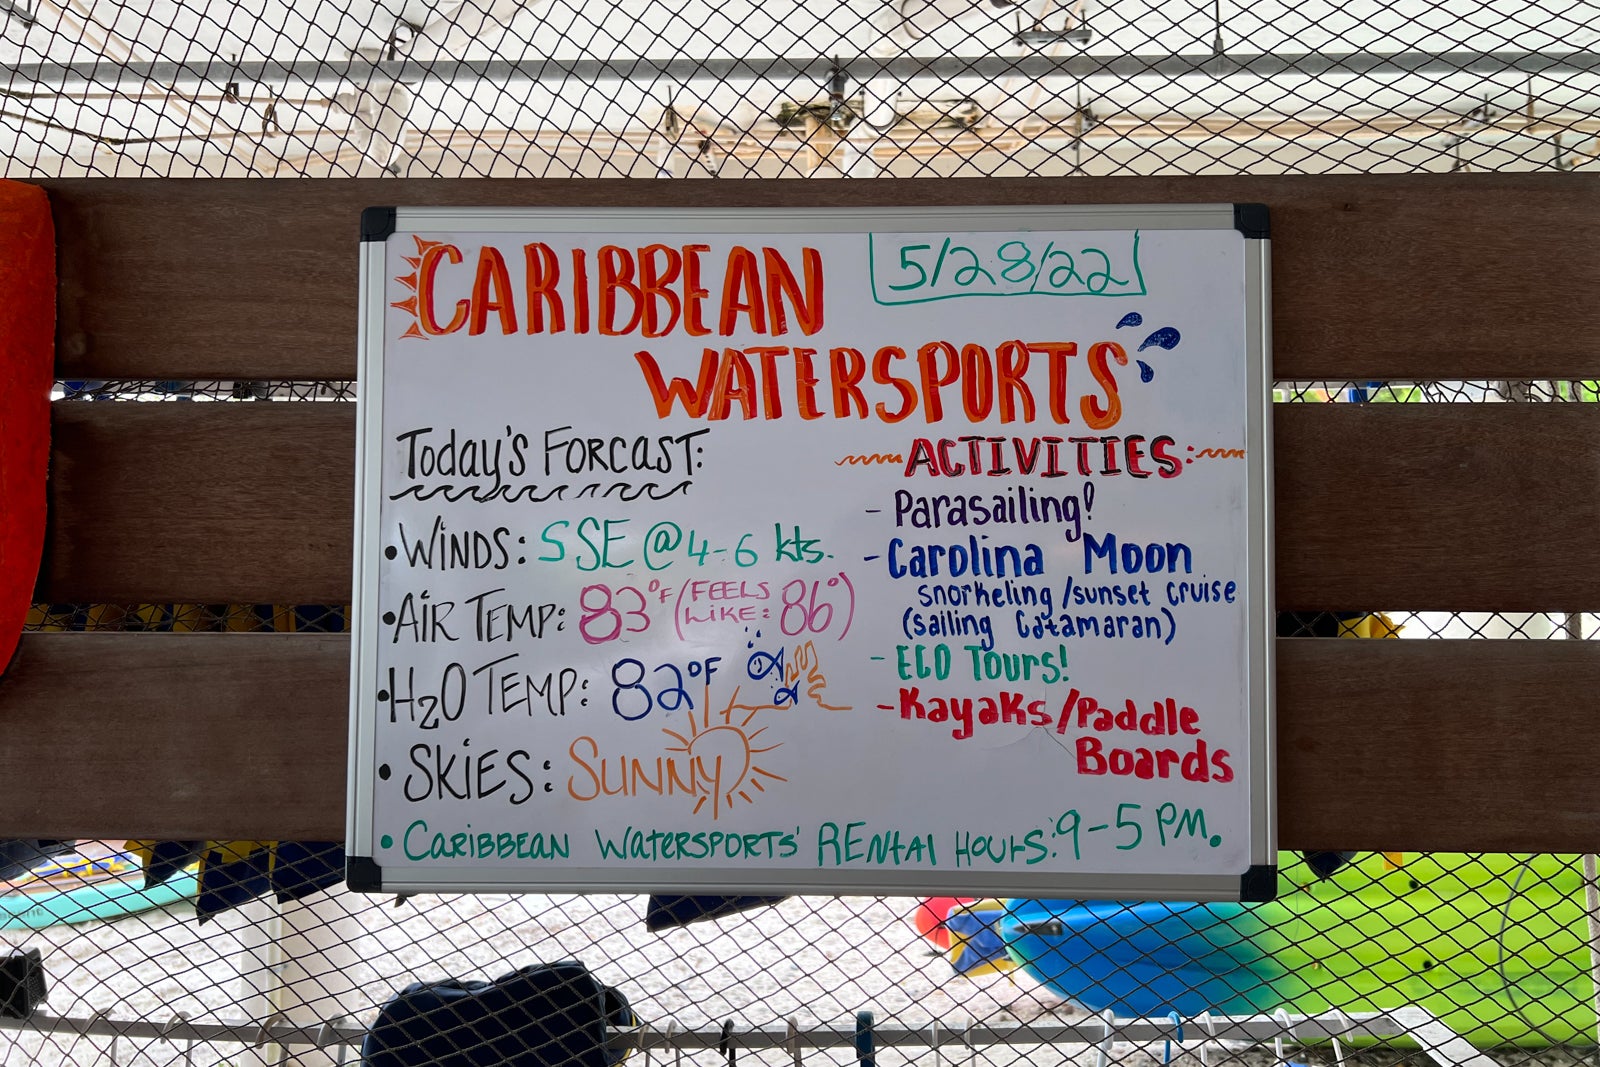 CARIBBEAN
5/28/22
WATERSPORTS
Today's Forcast:
• Winds: SSE @ 4-6 kts.
• Air Temp: 83°F (FEELS LiKE: 86°)
• H2O Temp: 82°F
• SKIES: SUNNY
ACTIVITIES:
- Parasailing!
- Carolina Moon
snorkeling/sunset cruise
(sailing Catamaran)
- ECO Tours!
- Kayaks/Paddle
Boards
• Caribbean Watersports' Rental Hours: 9-5 PM.